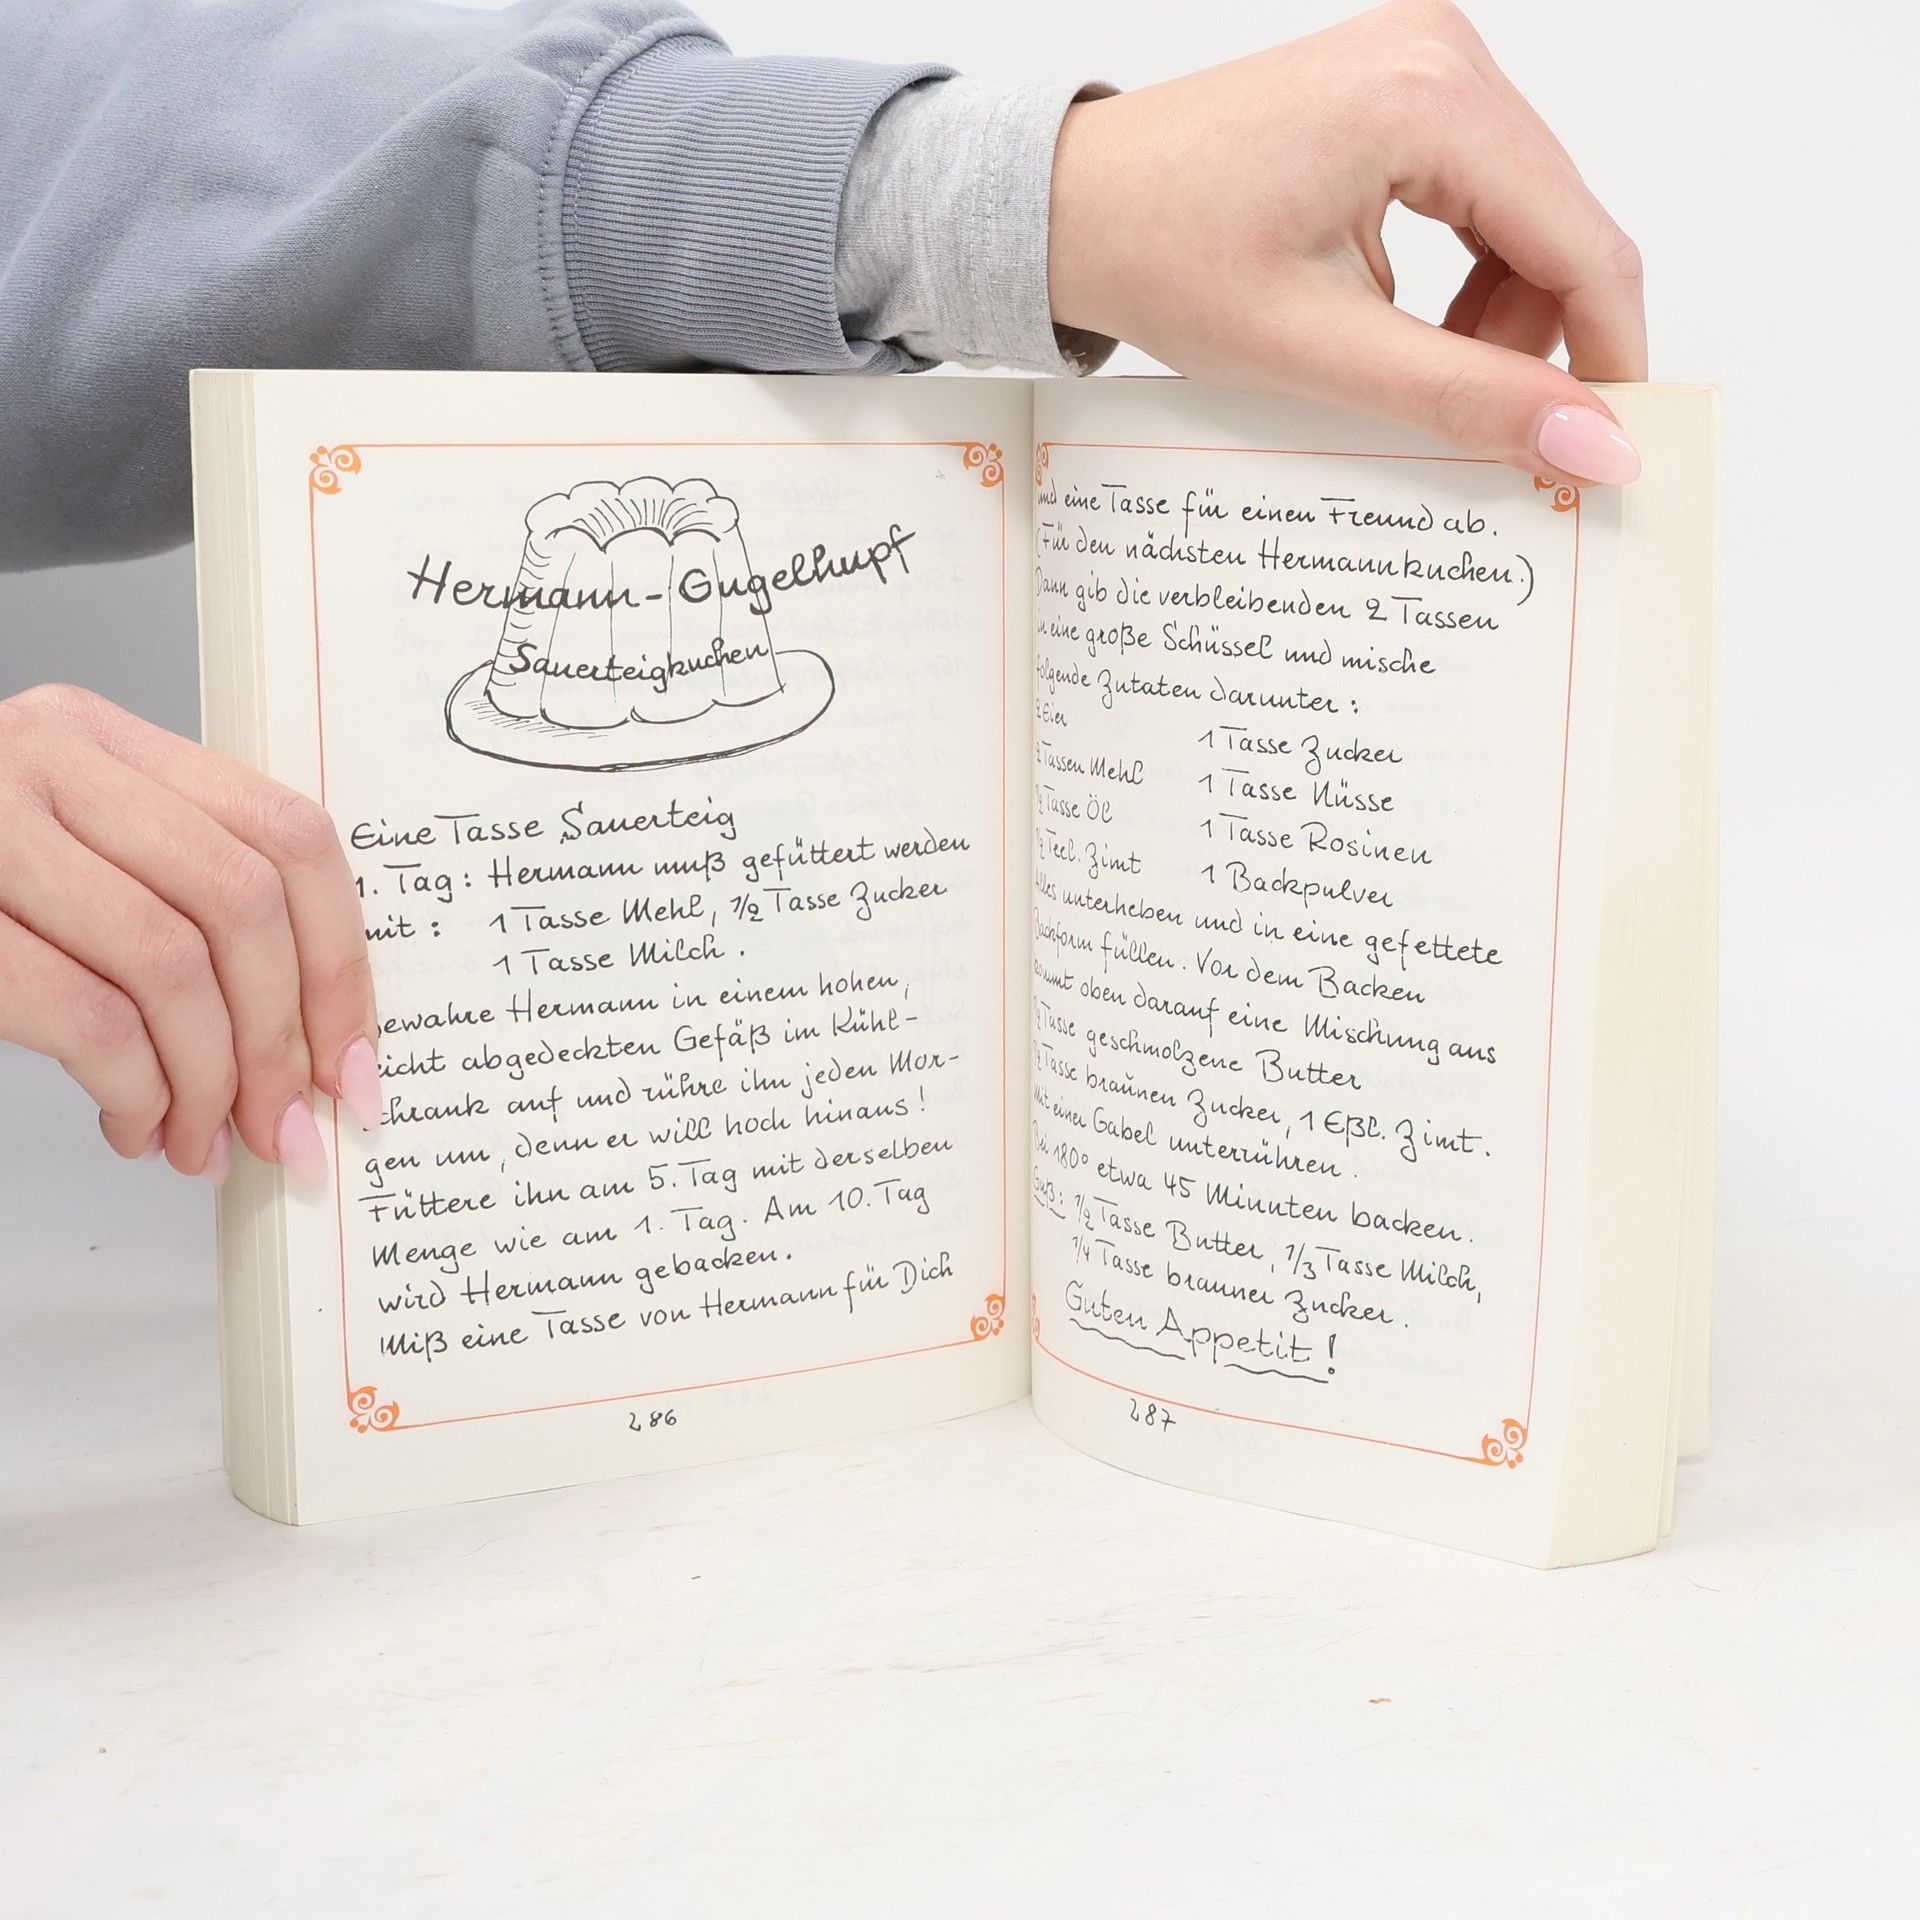 Hermann-Gugelhupf
Sauerteigkuchen
Eine Tasse Sauerteig
1. Tag: Hermann muß gefüttert werden
mit: 1 Tasse Mehl, 1/2 Tasse Zucker
1 Tasse Milch.
ewahre Hermann in einem hohen,
eicht abgedeckten Gefäß im Kühl-
chrank auf und rühre ihn jeden Mor-
gen um, denn er will hoch hinaus!
Füttere ihn am 5. Tag mit derselben
Menge wie am 1. Tag. Am 10. Tag
wird Hermann gebacken.
Miß eine Tasse von Hermann für Dich
286
und eine Tasse für einen Freund ab.
(Für den nächsten Hermannkuchen.)
Dann gib die verbleibenden 2 Tassen
in eine große Schüssel und mische
folgende Zutaten darunter:
2 Eier 1 Tasse Zucker
2 Tassen Mehl 1 Tasse Nüsse
1/2 Tasse Öl 1 Tasse Rosinen
1/2 Teel. Zimt 1 Backpulver
Alles unterheben und in eine gefettete
Backform füllen. Vor dem Backen
kommt oben darauf eine Mischung aus
1/2 Tasse geschmolzene Butter
1/2 Tasse braunen Zucker, 1 Eßl. Zimt.
Mit einer Gabel unterrühren.
Bei 180° etwa 45 Minuten backen.
Guß: 1/2 Tasse Butter, 1/3 Tasse Milch,
1/4 Tasse brauner Zucker.
Guten Appetit!
287